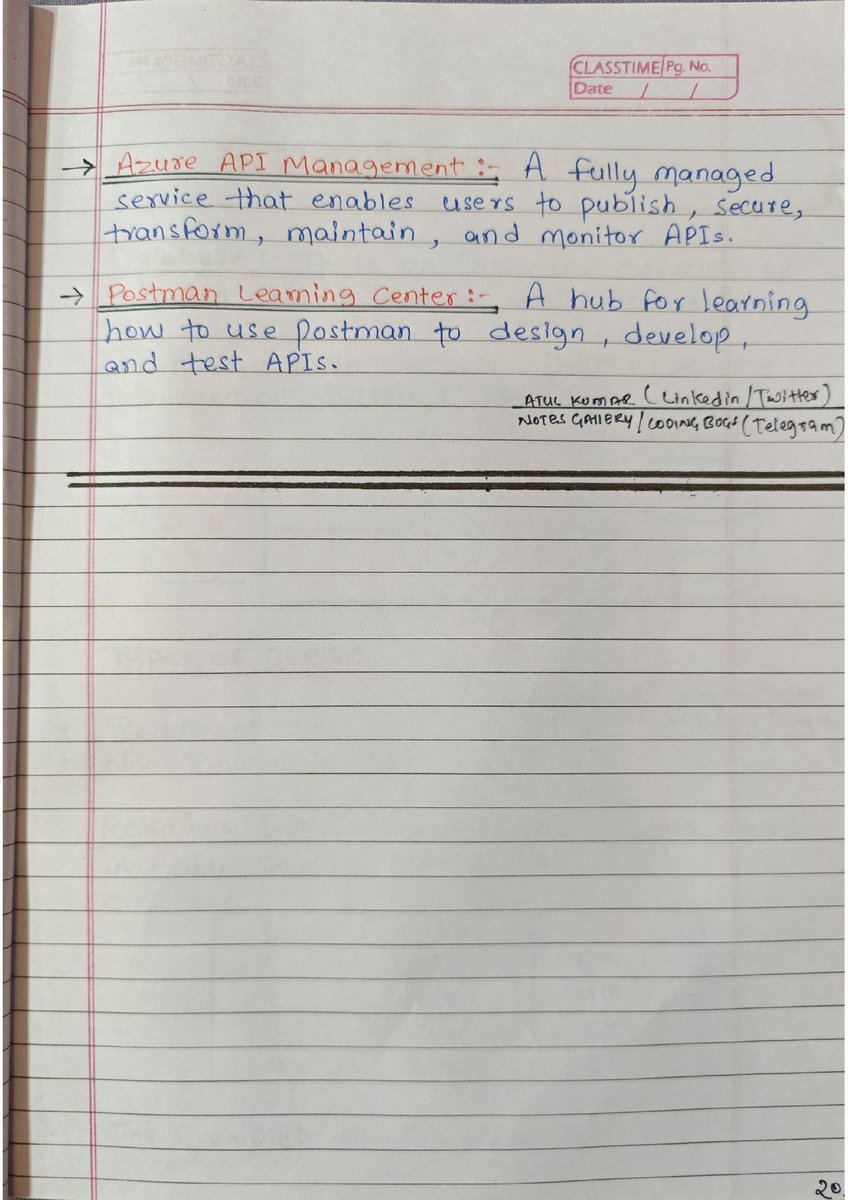 CLASSTIME Pg. No.
Date / /
→ Azure API Management :- A fully managed
service that enables users to publish, secure,
transform, maintain, and monitor APIs.
→ Postman Learning Center :- A hub for learning
how to use Postman to design, develop,
and test APIs.
ATUL KUMAR (Linkedin/Twitter)
NOTES GALLERY/CODING BUGS (Telegram)
20